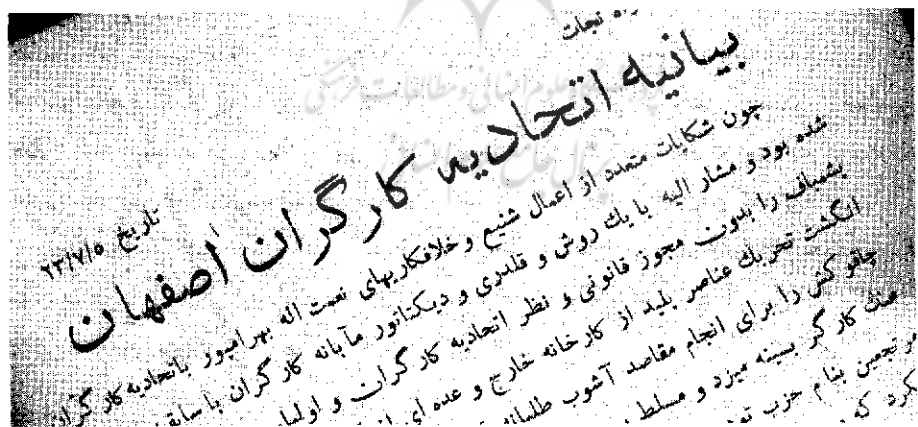 راه نجات
بیانیه اتحادیه کارگران اصفهان
تاریخ ۲۳/۷/۵
چون شکایات متعدد از اعمال شنیع و خلافکاریهای نعمت اله بهرامپور باتحادیه کارگران
شده بود و مشار الیه با یك روش و قلدری و دیکتاتور مآبانه کارگران باسابقه
پشمباف را بدون مجوز قانونی و نظر اتحادیه کارگران و اولیا
انگشت تحریك عناصر پلید از کارخانه خارج و عده ای
چاقو کش را برای انجام مقاصد آشوب طلبانه
کارگر بسینه میزد و مسلط
مرتجعین بنام حزب
کرد که